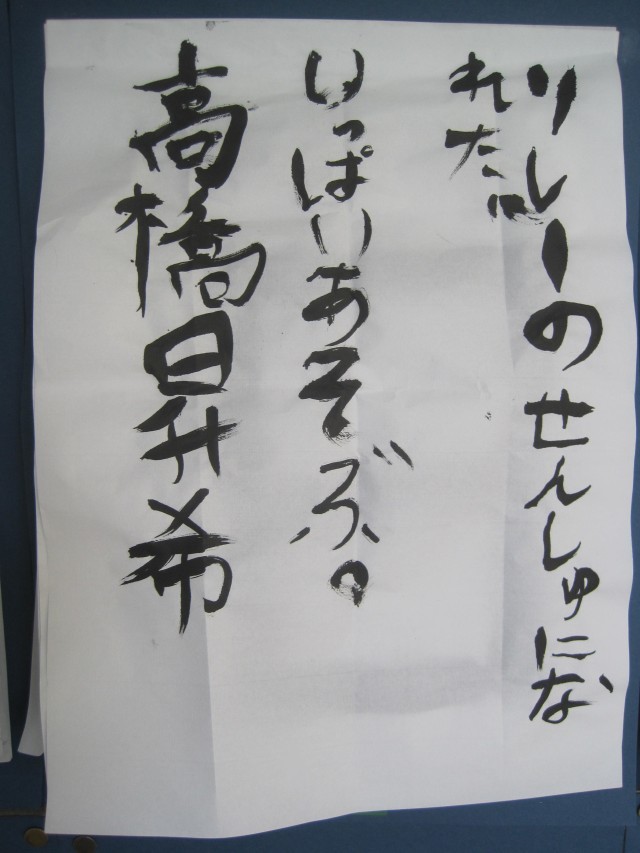 リレーのせんしゅにな
れたい
いっぱいあそぶ。
高橋昇希